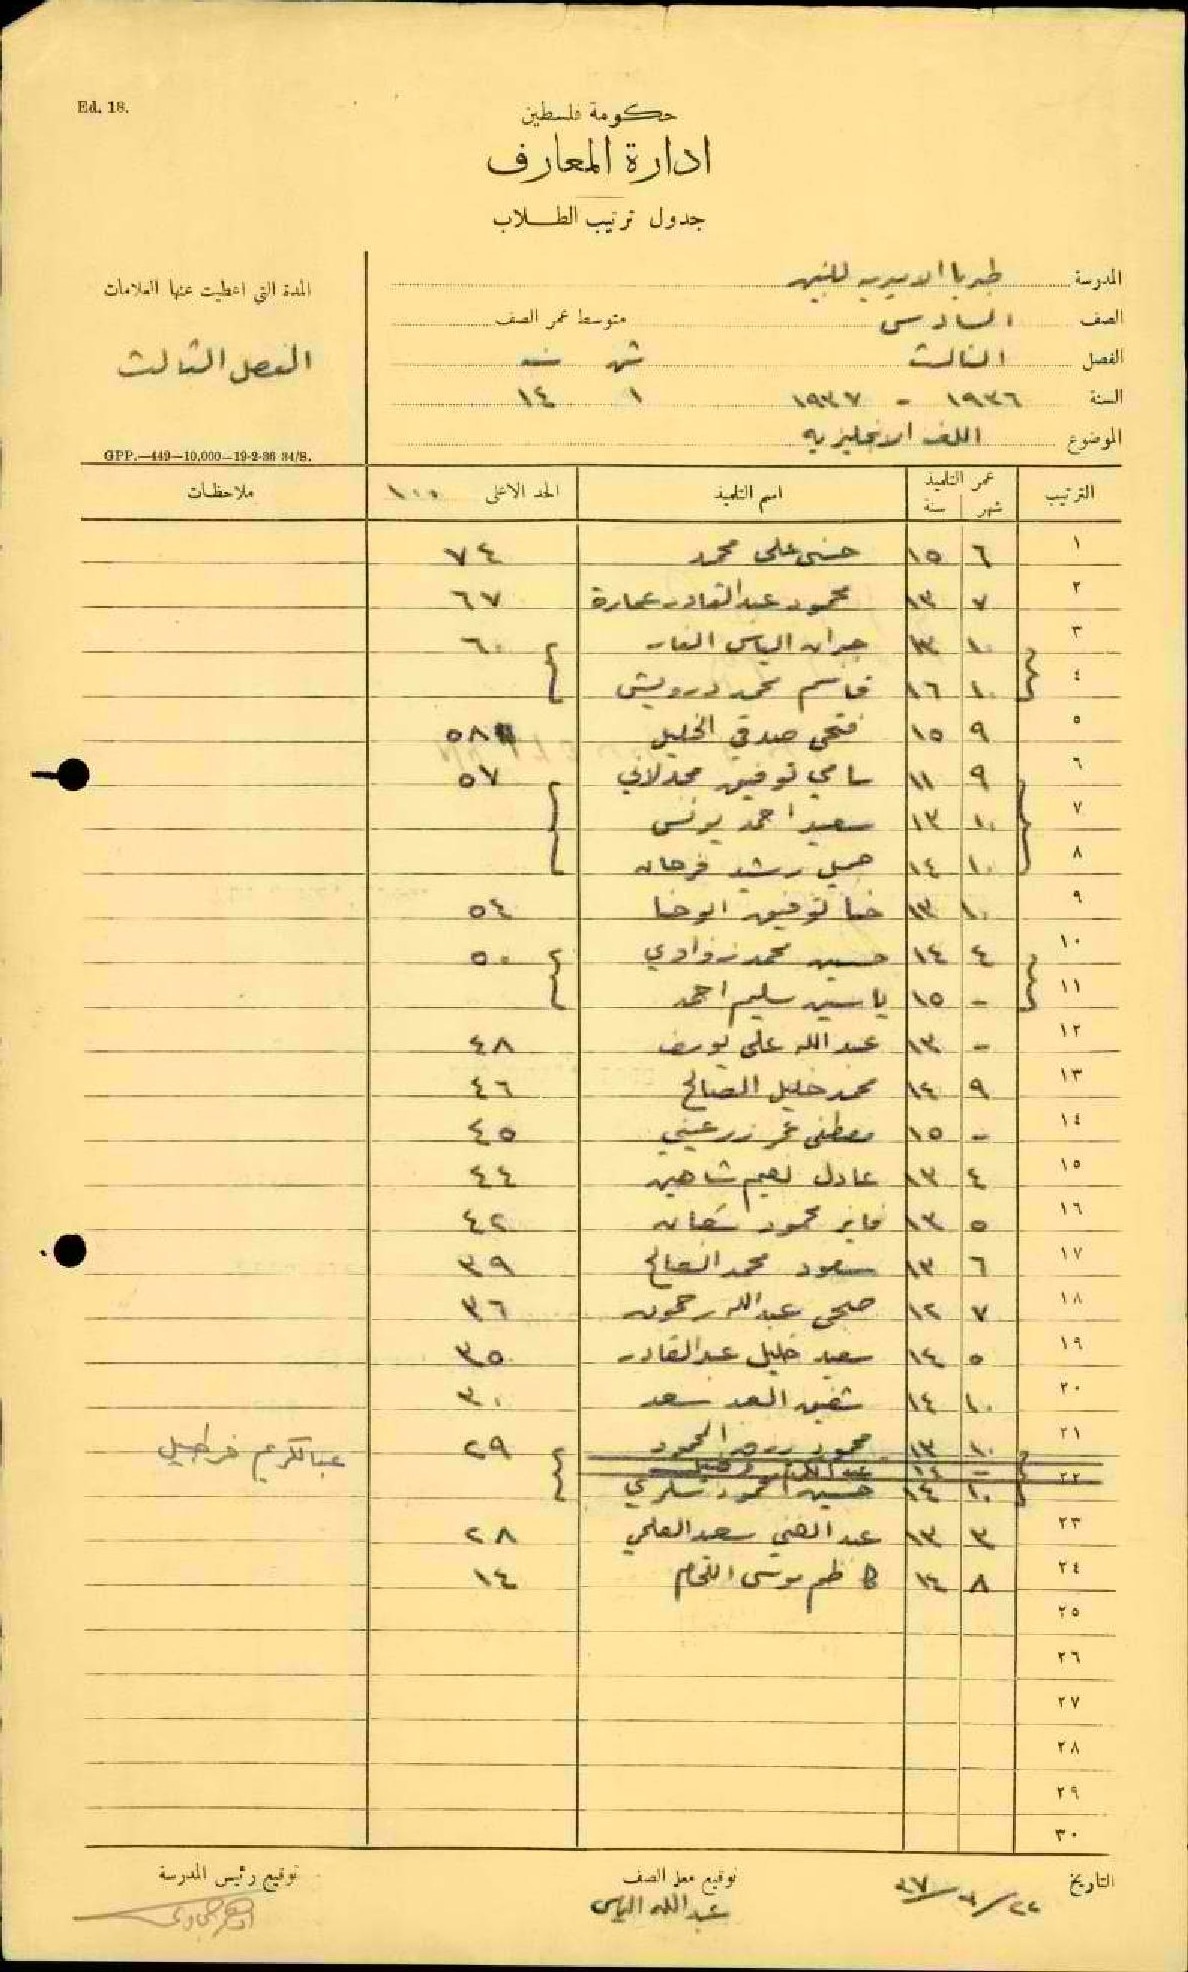 Ed. 18.
حكومة فلسطين
ادارة المعارف
جدول ترتيب الطلاب
المدرسة طبريا الاميرية للبنين
الصف السادس متوسط عمر الصف
الفصل الثالث شهر سنه
السنة ١٩٣٦ - ١٩٣٧ ١ ١٤
الموضوع اللغة الانجليزيه
المدة التي اعطيت عنها العلامات
الفصل الثالث
GPP.—449—10,000—19-2-36 34/S.
الترتيب عمر التلميذ شهر سنة اسم التلميذ الحد الاعلى ١٠٠ ملاحظات
١ ٦ ١٥ حسن علي محمد ٧٤
٢ ٧ ١٣ محمود عبد القادر عمارة ٦٧
٣ ١٠ ١٣ جبران الياس الفار ٦٠
٤ ١٠ ١٦ قاسم محمد درويش
٥ ٩ ١٥ فتحي صدقي الخليل ٥٨
٦ ٩ ١١ سامي توفيق مجدلاني ٥٧
٧ ١٠ ١٣ سعيد احمد يونس
٨ ١٠ ١٤ جميل رشيد فرحان
٩ ١٠ ١٣ حنا توفيق ابو حنا ٥٤
١٠ ٤ ١٤ حسين محمد زوادي ٥٠
١١ - ١٥ ياسين سليم احمد
١٢ - ١٣ عبد الله علي يوسف ٤٨
١٣ ٩ ١٤ محمد خليل الصالح ٤٦
١٤ - ١٥ مصطفى عمر زرعيني ٤٥
١٥ ٤ ١٣ عادل نعيم شاهين ٤٤
١٦ ٥ ١٣ فايز محمود شعبان ٤٢
١٧ ٦ ١٣ سعود محمد الصالح ٣٩
١٨ ٧ ١٢ صبحي عبد الله رحمون ٣٦
١٩ ٥ ١٤ سعيد خليل عبد القادر ٣٥
٢٠ ١٠ ١٤ شفيق السعد سعد ٣٠
٢١ ١٠ ١٣ محمود المحمود ٢٩ عبد الكريم خرطبيل
٢٢ - ١٤ عبد الكريم
١٠ ١٤ حسين المحمود
٢٣ ٣ ١٣ عبد الغني سعد العلمي ٢٨
٢٤ ٨ ١٤ كاظم موسى اللحام ١٤
٢٥
٢٦
٢٧
٢٨
٢٩
٣٠
التاريخ ٢٢/٣/٣٧ توقيع معلم الصف توقيع رئيس المدرسة
عبد الله الياس